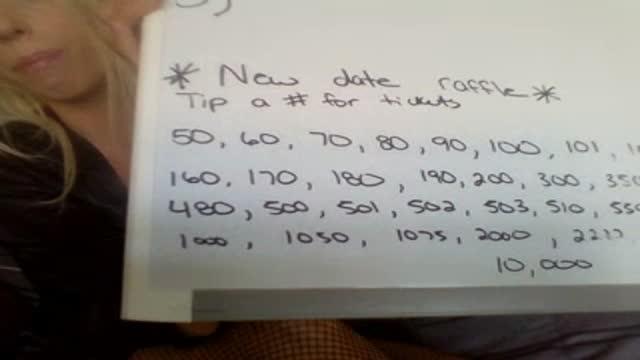 * New date raffle *
Tip a # for tickets
50, 60, 70, 80, 90, 100, 101,
160, 170, 180, 190, 200, 300, 350
480, 500, 501, 502, 503, 510, 550
1000, 1050, 1075, 2000,
10,000